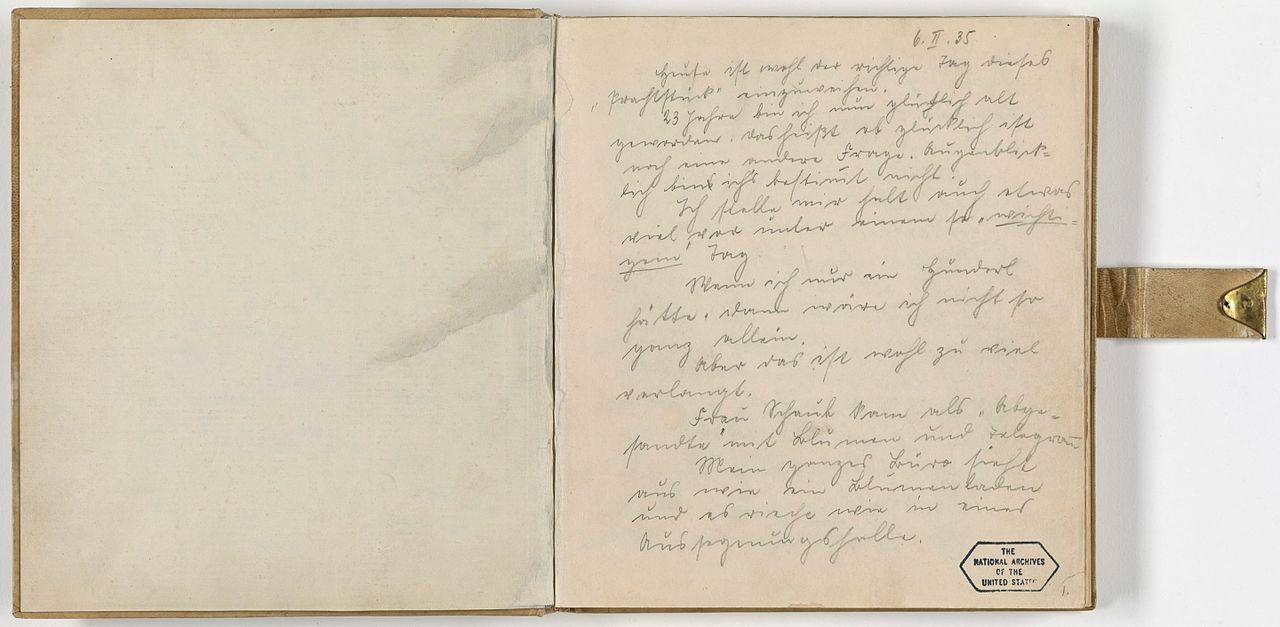 6. II. 35
Heute ist wohl der richtige Tag dieses
„Prachtstück“ einzuweihen.
23 Jahre bin ich nun glücklich alt
geworden. Das heißt ob glücklich ist
noch eine andere Frage. Augenblick=
lich bin ichs bestim̄t nicht.
Ich stelle mir halt auch etwas
viel vor unter einem so „wichti=
gem“ Tag
Wenn ich nur ein Hunderl
hätte, dann wäre ich nicht so
ganz allein.
Aber das ist wohl zu viel
verlangt.
Frau Schaub kam als „Abge=
sandte“ mit Blumen und Telegram̄
Mein ganzes Büro sieht
aus wie ein Blumenladen
und es riecht wie in einer
Aussegnungshalle.
THE
NATIONAL ARCHIVES
OF THE
UNITED STATES
1.